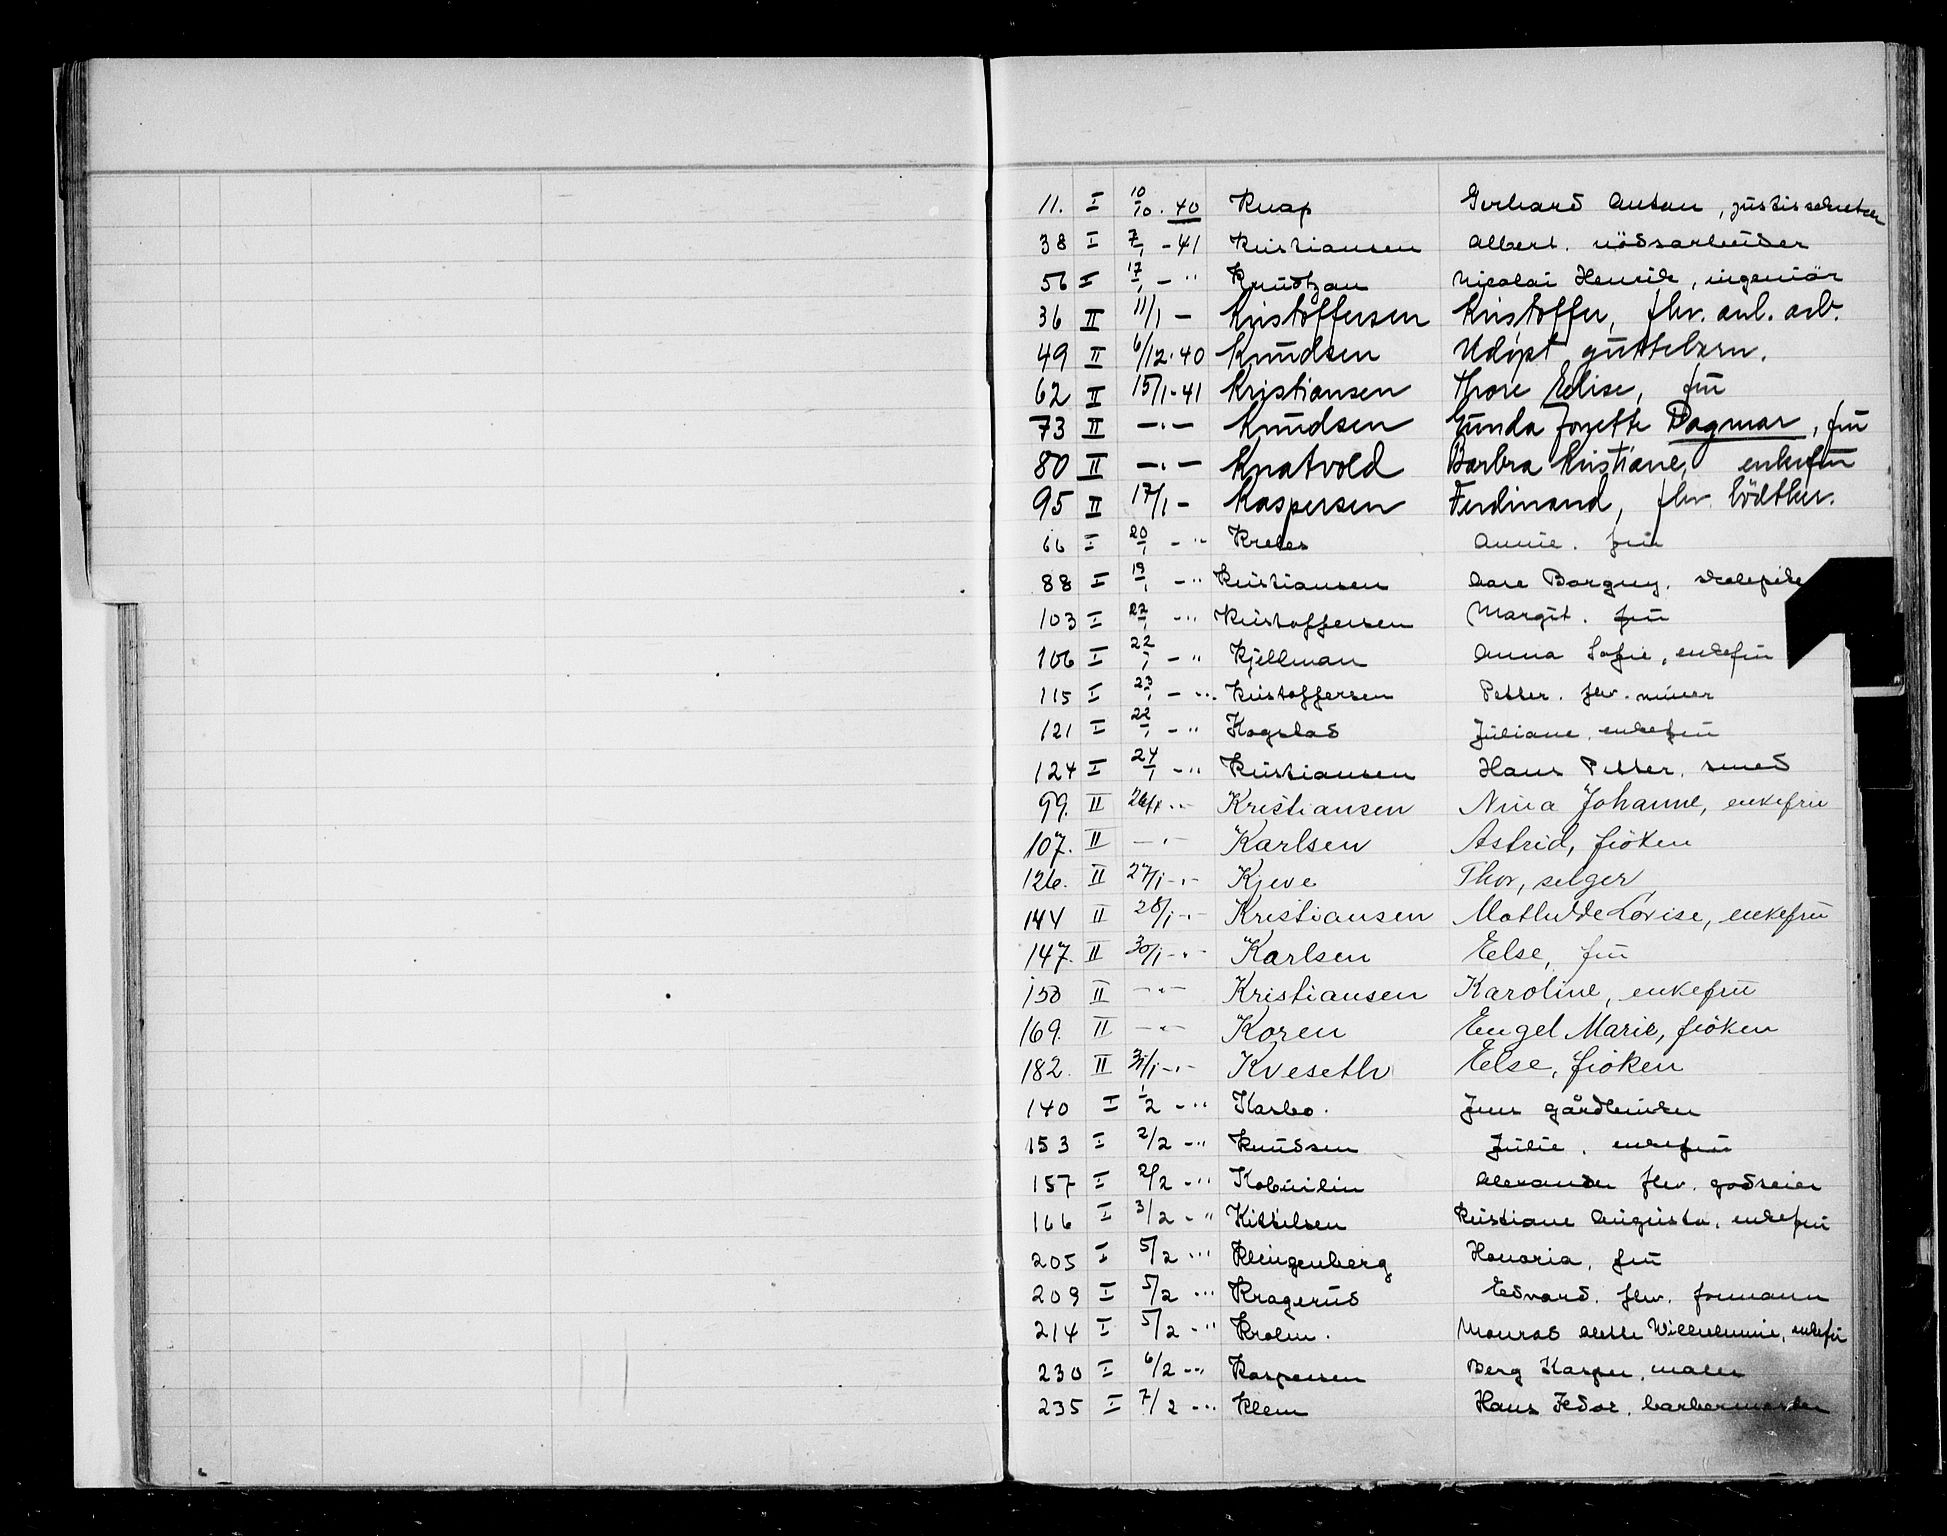 11. I 10/10. 40 Knap Gerhard Anton, justissekretær
38 I 7/1 - 41 Kristiansen Albert. nödsarbeider
56 I 17/1 - " Knudtzon Nicolai Henrik, ingeniör
36 II 11/1 - Kristoffersen Kristoffer, fhv. anl. arb.
49 II 6/12.40 Knudsen Udöpt guttebarn.
62 II 15/1-41 Kristiansen Thore Edise, frü
73 II -"- Knudsen Gunda Josette Dagmar, frü
80 II -"- Knatvold Barbra Kristiane, enkefrü
95 II 17/1 - Kaspersen Ferdinand, fhv. bödtker.
66 I 20/1 - " Annie. frü
88 I 19/1 - " Kristiansen Aase Borgny.
103 I 22/1 - " Kristoffersen Margit. frü
106 I 22/1 - " Kjellman Anna Sofie, enkefrü
115 I 23/1 - " Kristoffersen Petter. fhv. minør
121 I 22/1 - " Kogstad Juliane, enkefrü
124 I 24/1 - " Kristiansen Hans Petter. smed
99. II 26/1 -"- Kristiansen Nina Johanne, enkefrü
107. II -"- Karlsen Astrid, fröken
126. II 27/1 -"- Kjeve Thor, selger
144 II 28/1 -"- Kristiansen Mathilde Lovise, enkefrü
147. II 30/1 -"- Karlsen Else, frü
150 II -"- Kristiansen Karoline, enkefrü
169. II -"- Koren Engel Marie, fröken
182. II 31/1 -"- Kveseth Else, fröken
140 I 1/2 - " Karbo. Jens gårdbruker
153 I 2/2 - " Knudsen Julie. enkefrü
157 I 2/2 - " Kobuilin Alexander fhv. godseier
166 I 3/2 - " Kittilsen Kristiane Augusta, enkefrü
205 I 5/2 - " Klingenberg Honoria, frü
209 I 5/2 - " Kragerud Edvard. fhv. formann
214 I 5/2 - " Krohn. Monrad Alette Willhelmine, enkefrü
230 I 6/2 - " Kaspersen Berg Kasper, maler
235 I 7/2 - " Klem Hans Fedor. barbermester